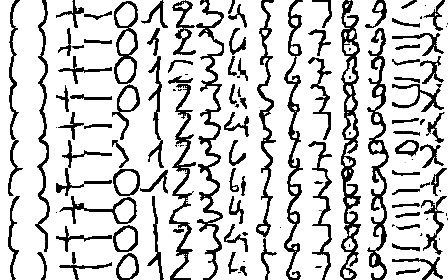 ( ) + - 0 1 2 3 4 5 6 7 8 9
( ) + - 0 1 2 3 4 5 6 7 8 9
( ) + - 0 1 2 3 4 5 6 7 8 9
( ) + - 0 1 2 3 4 5 6 7 8 9
( ) + - 1 2 3 4 5 6 7 8 9
( ) + - 1 2 3 4 5 6 7 8 9
( ) + - 0 1 2 3 4 5 6 7 8 9
( ) + - 0 1 2 3 4 5 6 7 8 9
( ) + - 0 1 2 3 4 5 6 7 8 9
( ) + - 0 1 2 3 4 5 6 7 8 9